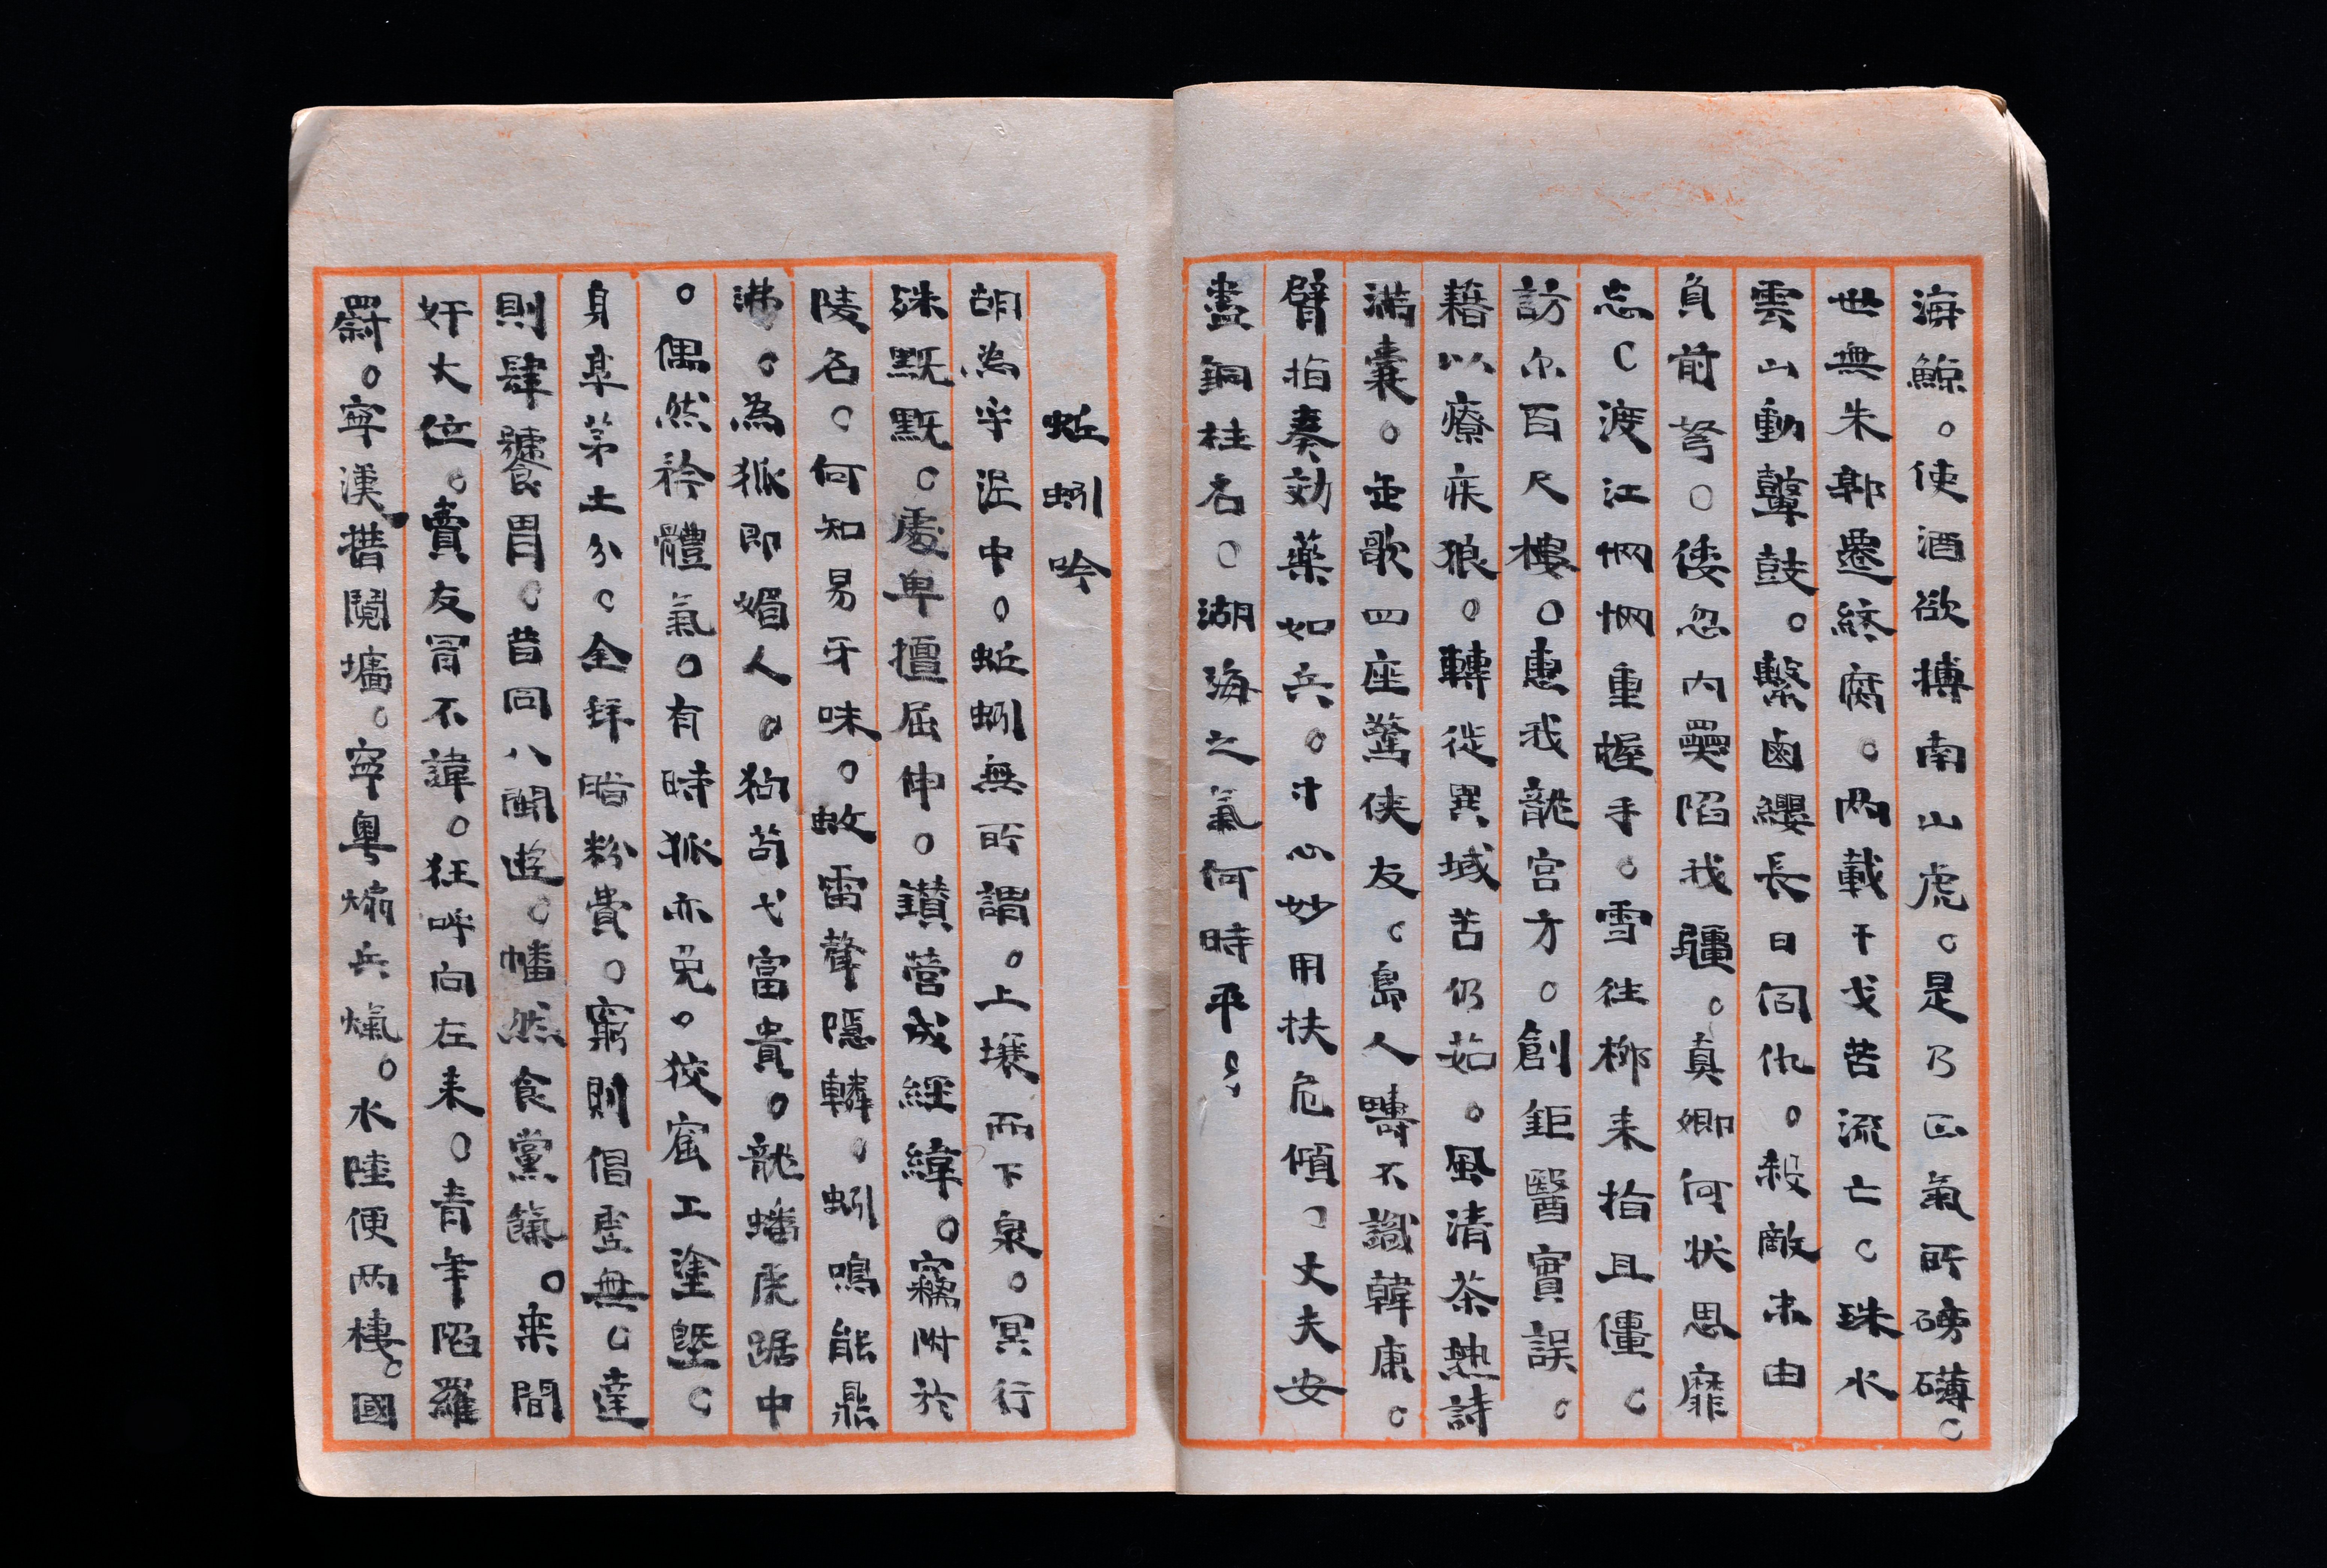 海鯨。使酒欲搏南山虎。是乃正氣所磅礴。
世無朱郭遷終腐。兩載干戈苦流亡。珠水
雲山動鼙鼓。繫鹵纓長日同仇。殺敵未由
負前弩。倭忽內奰陷我疆。真卿何狀思靡
忘。渡江惘惘重握手。雪往柳来指且僵。
訪尔百尺樓。惠我龍宮方。創鉅醫實誤。
藉以療疾狼。轉徙異域苦仍茹。風清茶熱詩
滿囊。缶歌四座驚俠友。島人疇不識韓康。
臂指奏効藥如兵。寸心妙用扶危傾。丈夫安
盡銅柱名。湖海之氣何時平。
蚯蚓吟
胡為乎泥中。蚯蚓無所謂。上壤而下泉。冥行
殊默默。處卑擅屈伸。鑽營成經緯。竊附於
陵名。何知易牙味。蚊雷聲隱轔。蚓鳴能鼎
沸。為狐即媚人。狗苟弋富貴。龍蟠虎踞中
。偶然矜體氣。有時狐亦兔。狡窟工塗墍。
身皋茅土分。全拜脂粉費。窮則倡虛無。達
則肆饕胃。昔同八閩遊。幡然食黨餼。来間
奸大位。賣友冒不諱。狂呼向左来。青年陷羅
罻。寧漢措鬩墻。寧粵煽兵燹。水陸便兩棲。國